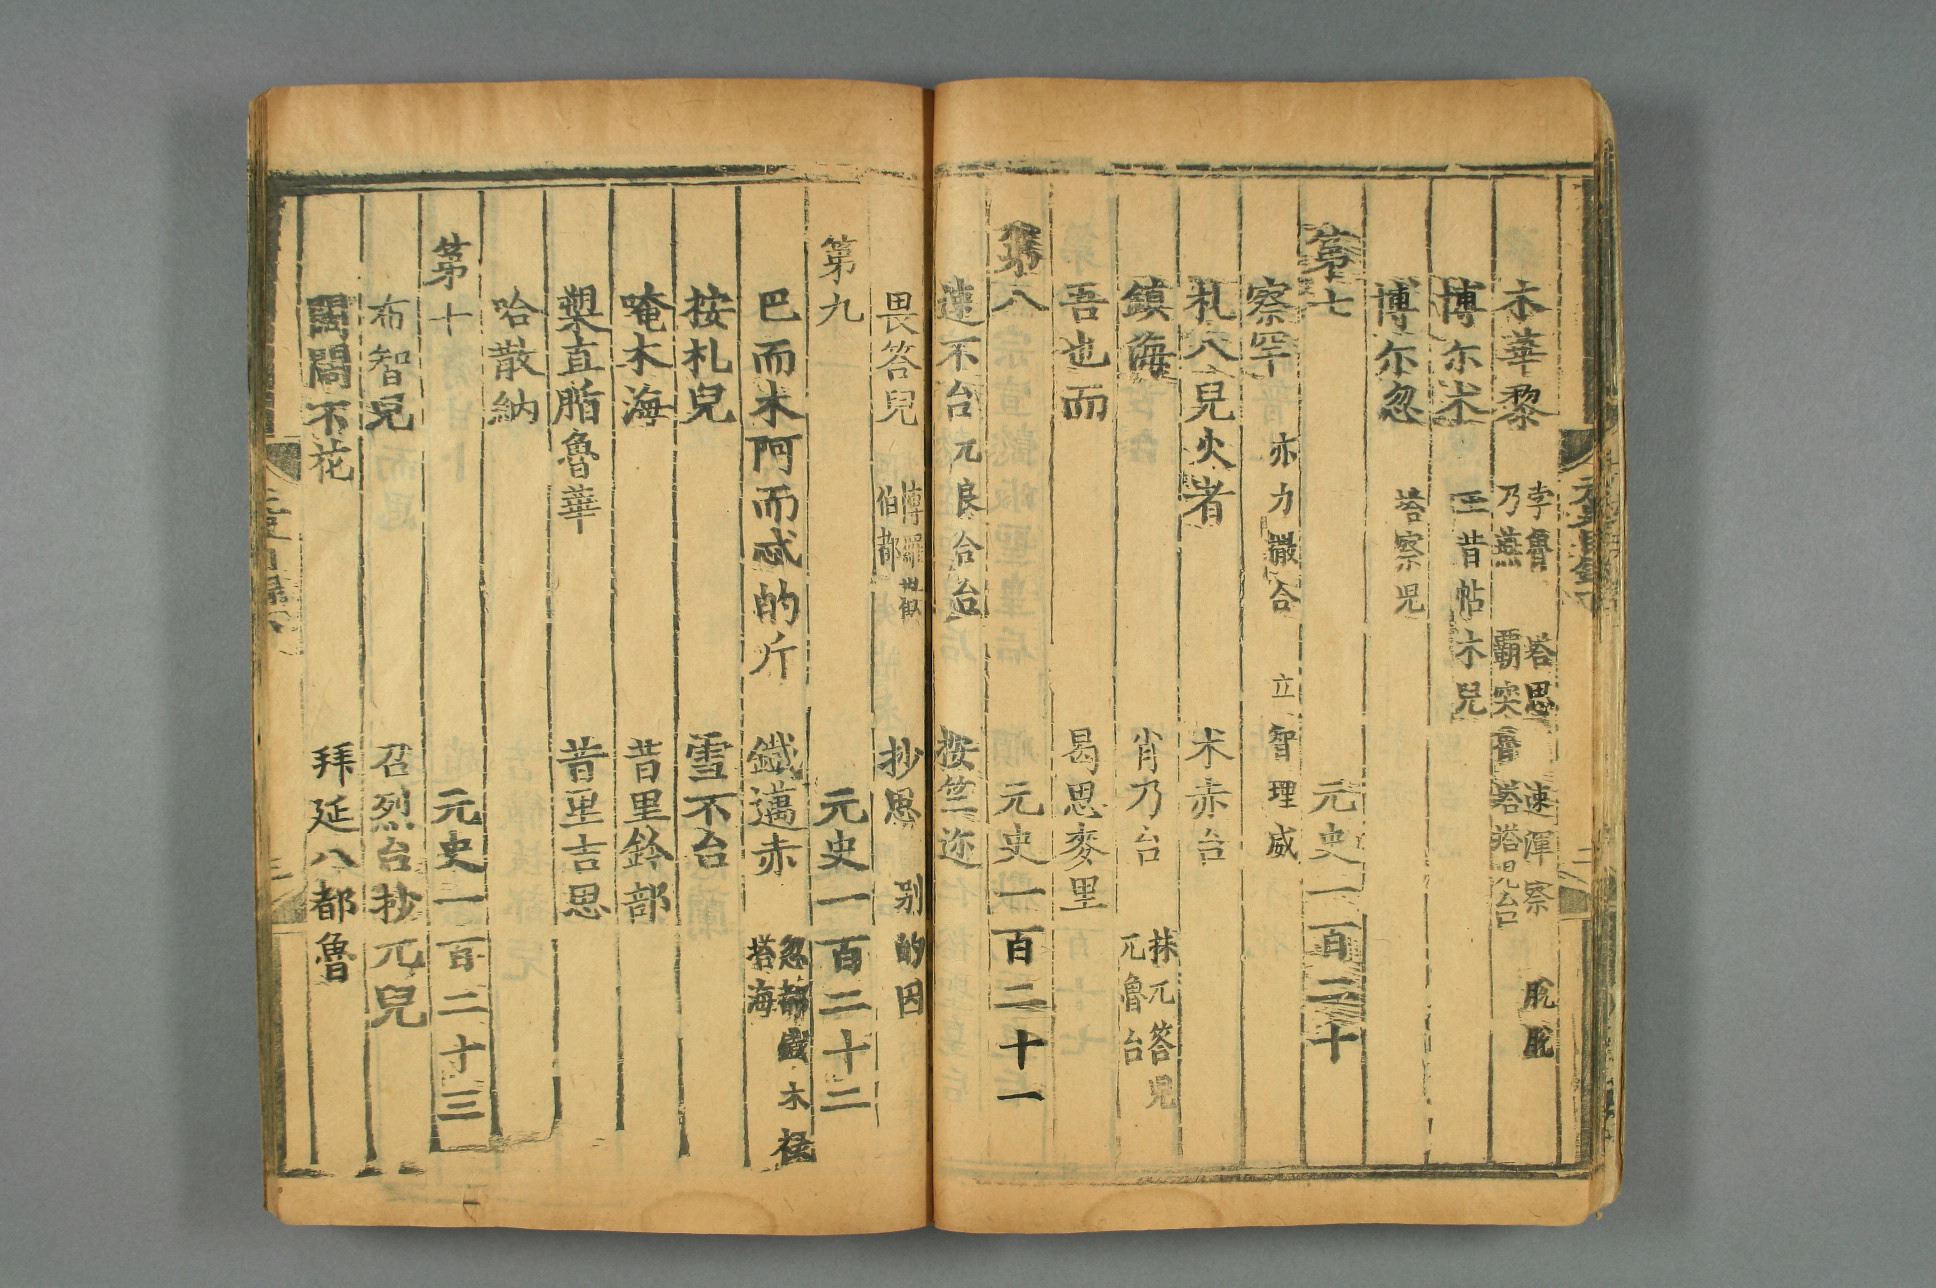 木華黎 孛魯 塔思 速渾察 乃燕 霸突魯 塔塔兒台 脫脫
博尔朮 玉昔帖木兒
博尔忽 塔察兒
第七 元史一百二十
察罕 亦力撒合 立智理威
札八兒火者 朮赤台
鎮海 肖乃台 抹兀答兒 兀魯台
吾也而 曷思麥里
第八 元史一百二十一
速不台 兀良合台 按竺迩
畏答兒 博羅歡 伯都 抄思 别的因
第九 元史一百二十二
巴而朮阿而忒的斤 鐵邁赤 忽都虎 塔海
按札兒 雪不台
唵木海 昔里鈐部
槊直腯魯華 昔里吉思
哈散納
第十 元史一百二十三
布智兒 召烈台抄兀兒
闊闊不花 拜延八都魯